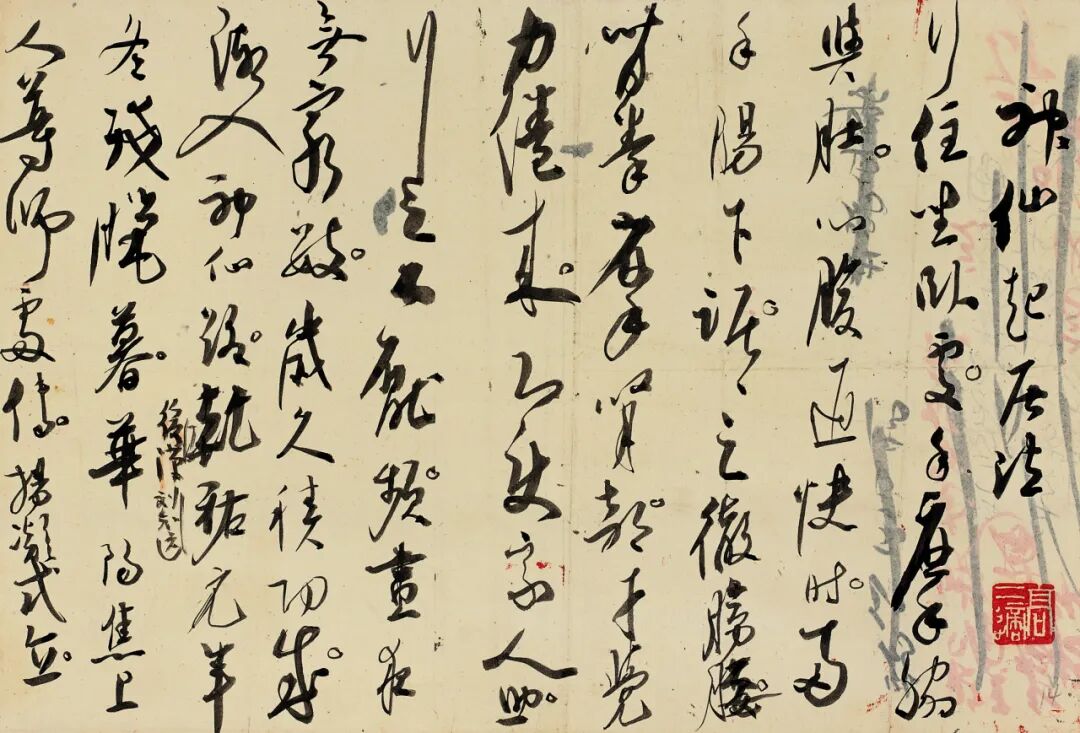 神仙起居法
行住坐臥處。手摩脅
與肚。心腹通快時。兩
手腸下踞。々之徹膀腰。
背拳摩腎部。才覺
力倦來。即使家人助。
行之不厭頻。晝夜
無窮數。歲久積功成。
漸入神仙路。乾祐元年
後漢劉知遠
冬殘臘暮。華陽焦上
人尊師處傳。楊凝式立。